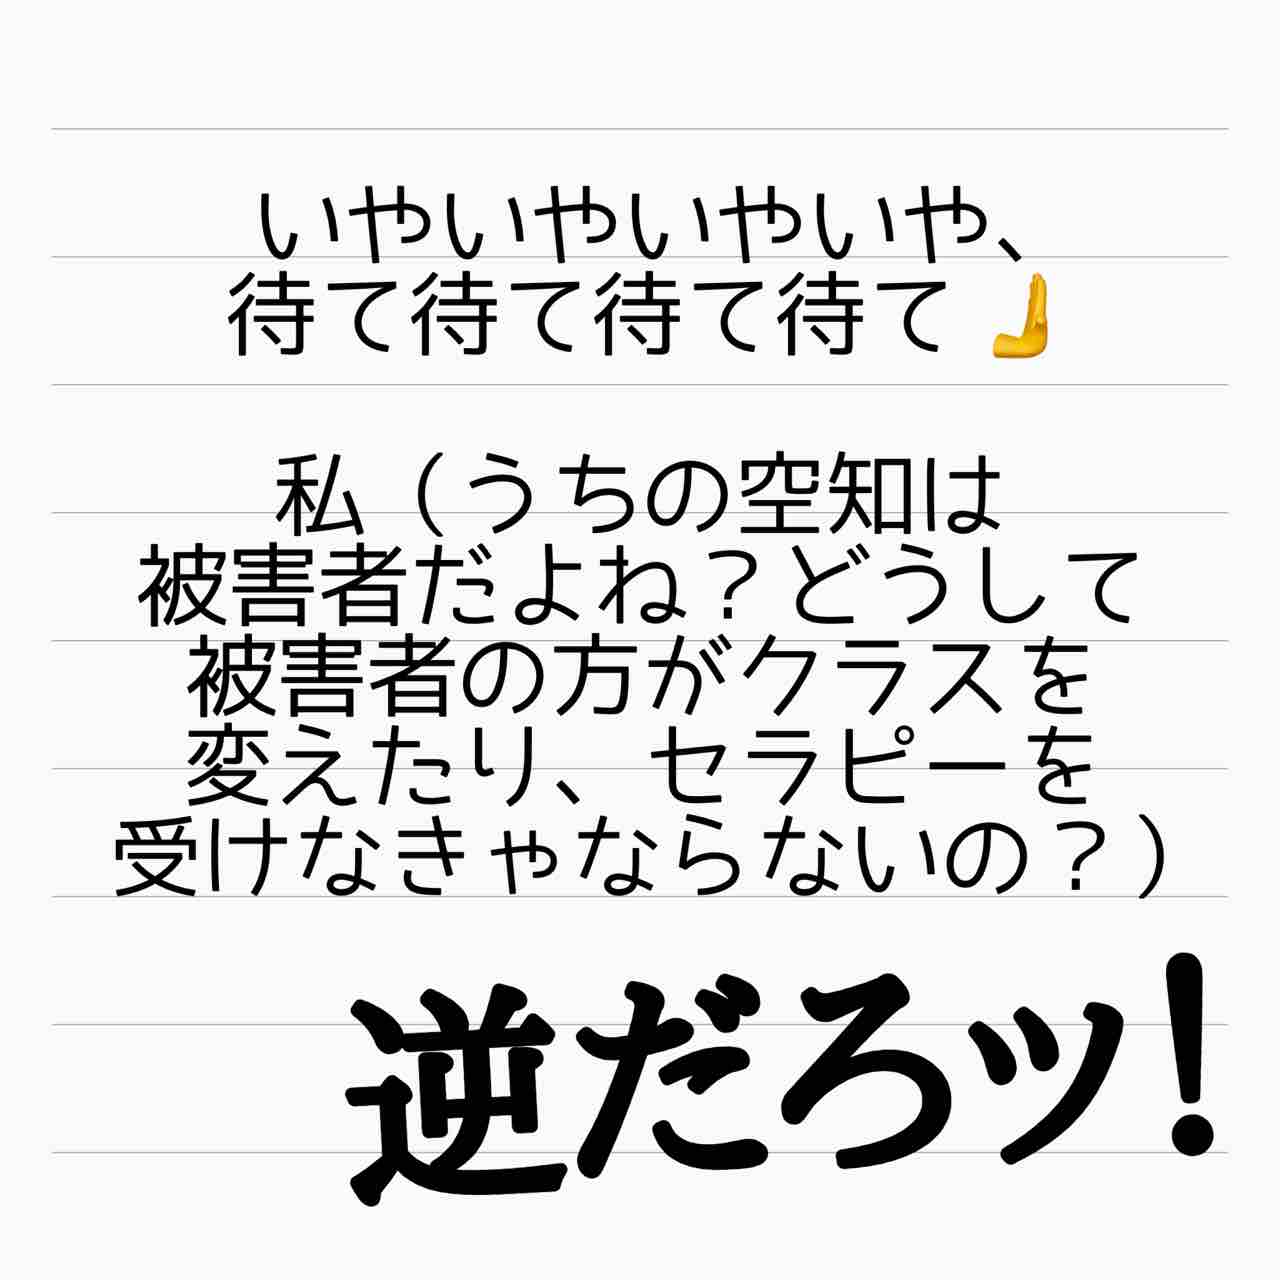 いやいやいやいや、
待て待て待て待て🫷
私（うちの空知は
被害者だよね？どうして
被害者の方がクラスを
変えたり、セラピーを
受けなきゃならないの？）
逆だろッ！